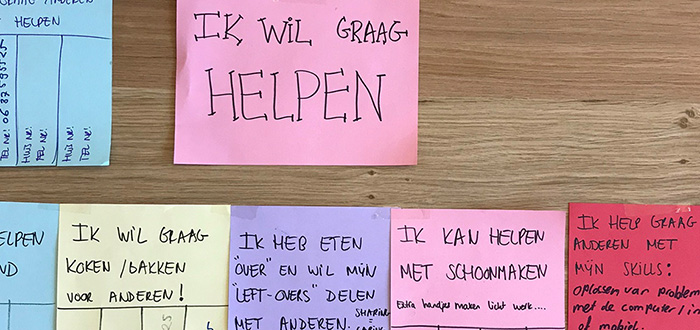 HELPEN
TEL NR:
HUIS NR:
TEL NR:
HUIS NR:
TEL NR:
IK WIL GRAAG
HELPEN
ELPEN
ND
IK WIL GRAAG
KOKEN / BAKKEN
VOOR ANDEREN!
IK HEB ETEN
"OVER" EN WIL MIJN
"LEFT-OVERS" DELEN
MET ANDEREN.
SHARING
=
IK KAN HELPEN
MET SCHOONMAKEN
Extra handjes maken licht werk....
IK HELP GRAAG
ANDEREN MET
MIJN SKILLS:
oplossen van problem
met de computer /
of mobiel.